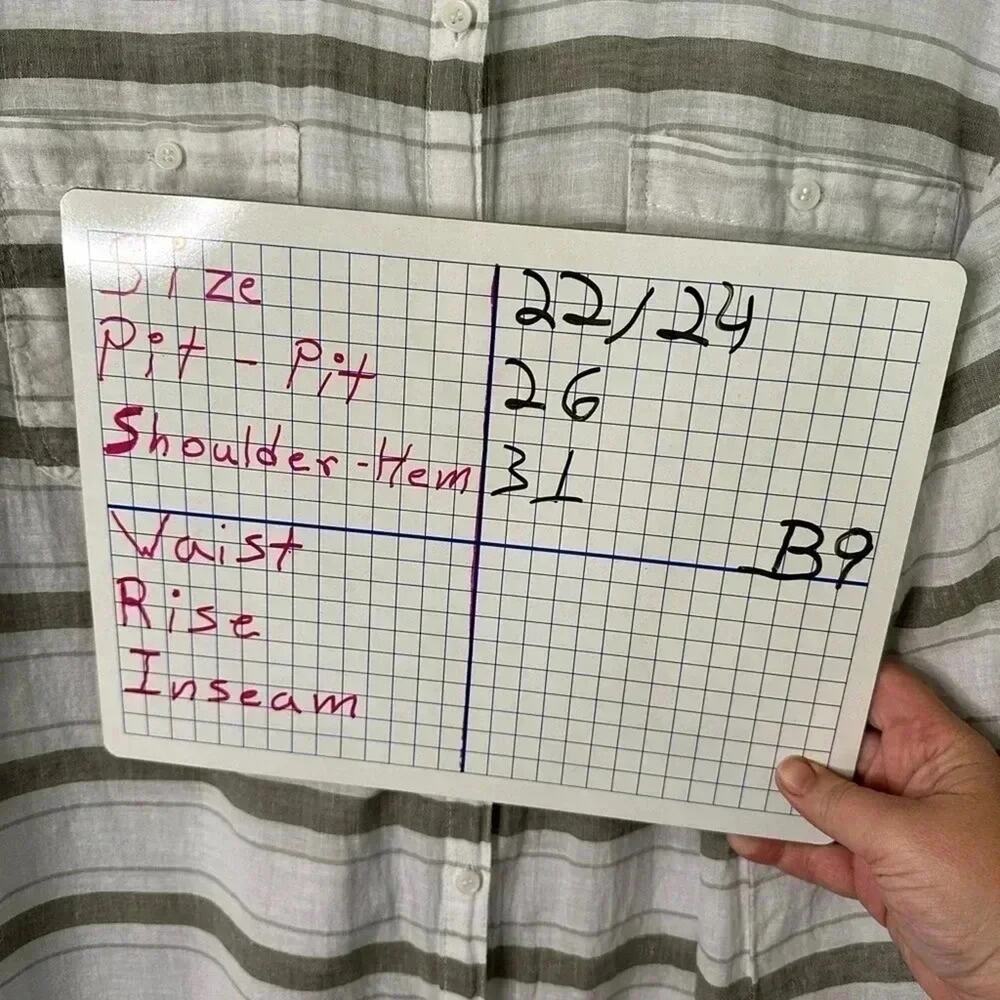 Size 22/24
Pit - Pit 26
Shoulder-Hem 31
B9
Waist
Rise
Inseam